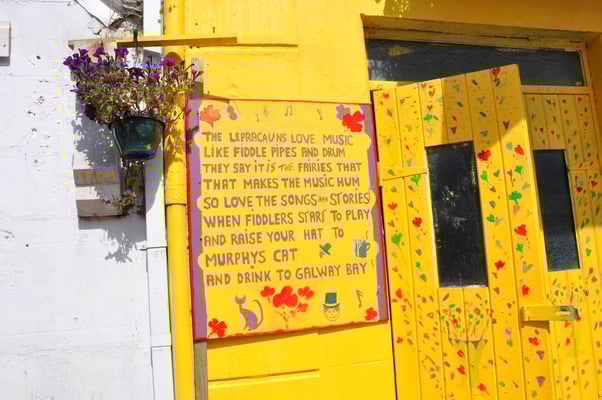 THE LEPRACAUNS LOVE MUSIC
LIKE FIDDLE PIPES AND DRUM
THEY SAY IT IS THE FAIRIES THAT
THAT MAKES THE MUSIC HUM
SO LOVE THE SONGS AND STORIES
WHEN FIDDLERS START TO PLAY
AND RAISE YOUR HAT TO
MURPHYS CAT
AND DRINK TO GALWAY BAY